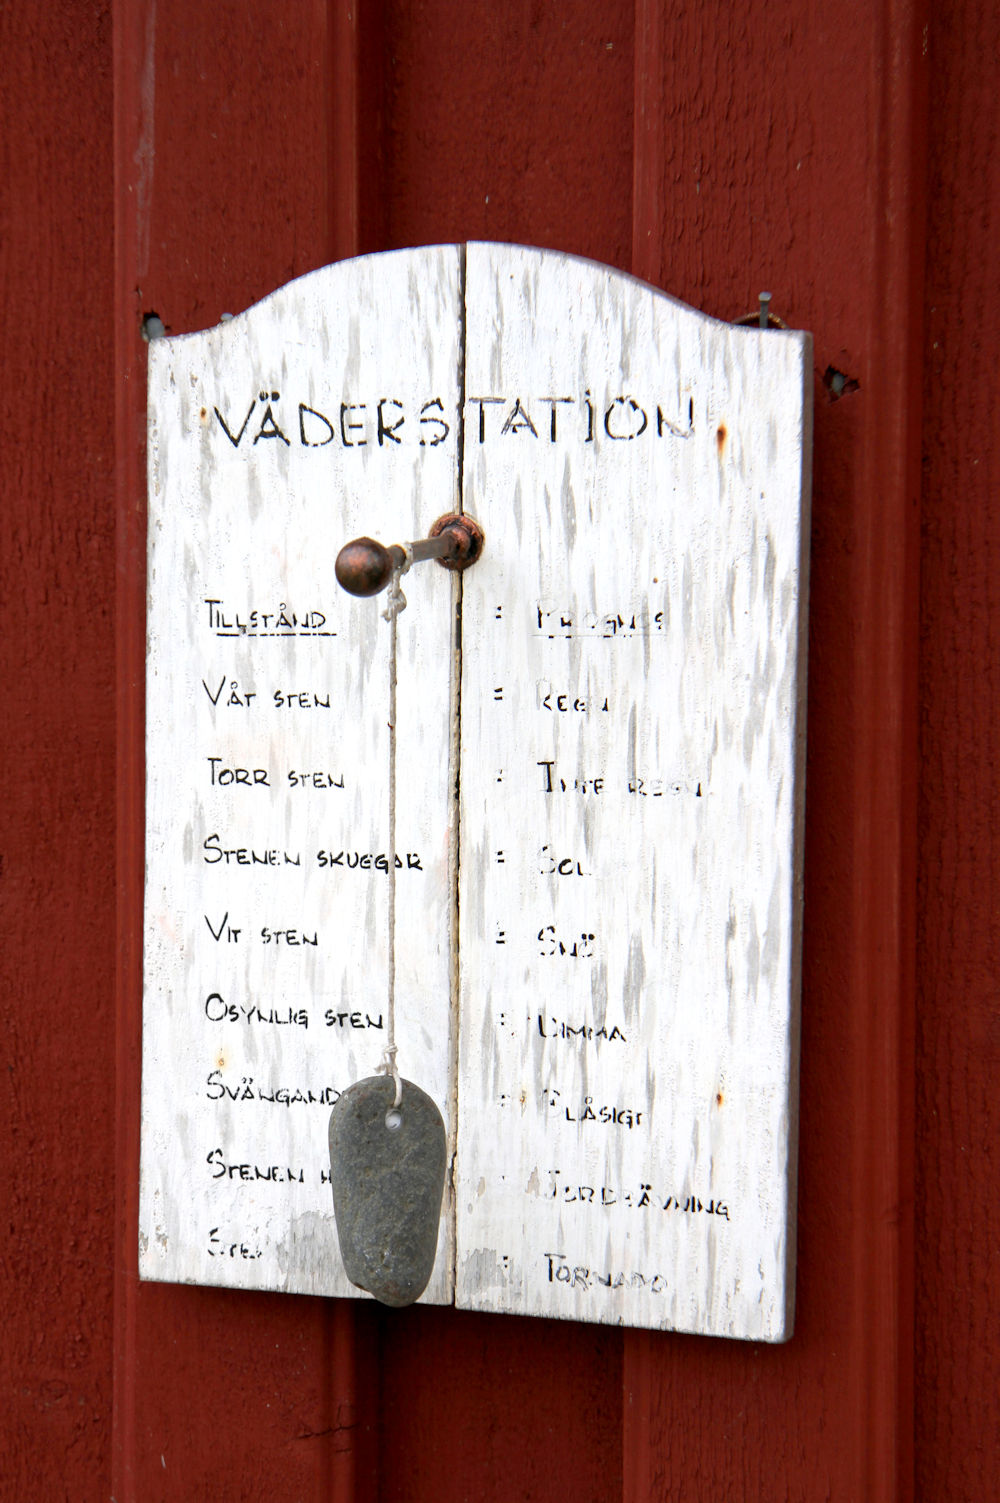 VÄDERSTATION
TILLSTÅND : PROGNOS
VÅT STEN = REGN
TORR STEN : INTE REGN
STENEN SKUGGAR = SOL
VIT STEN = SNÖ
OSYNLIG STEN : DIMMA
SVÄNGAND : BLÅSIGT
STENEN H JORDBÄVNING
STEN : TORNADO